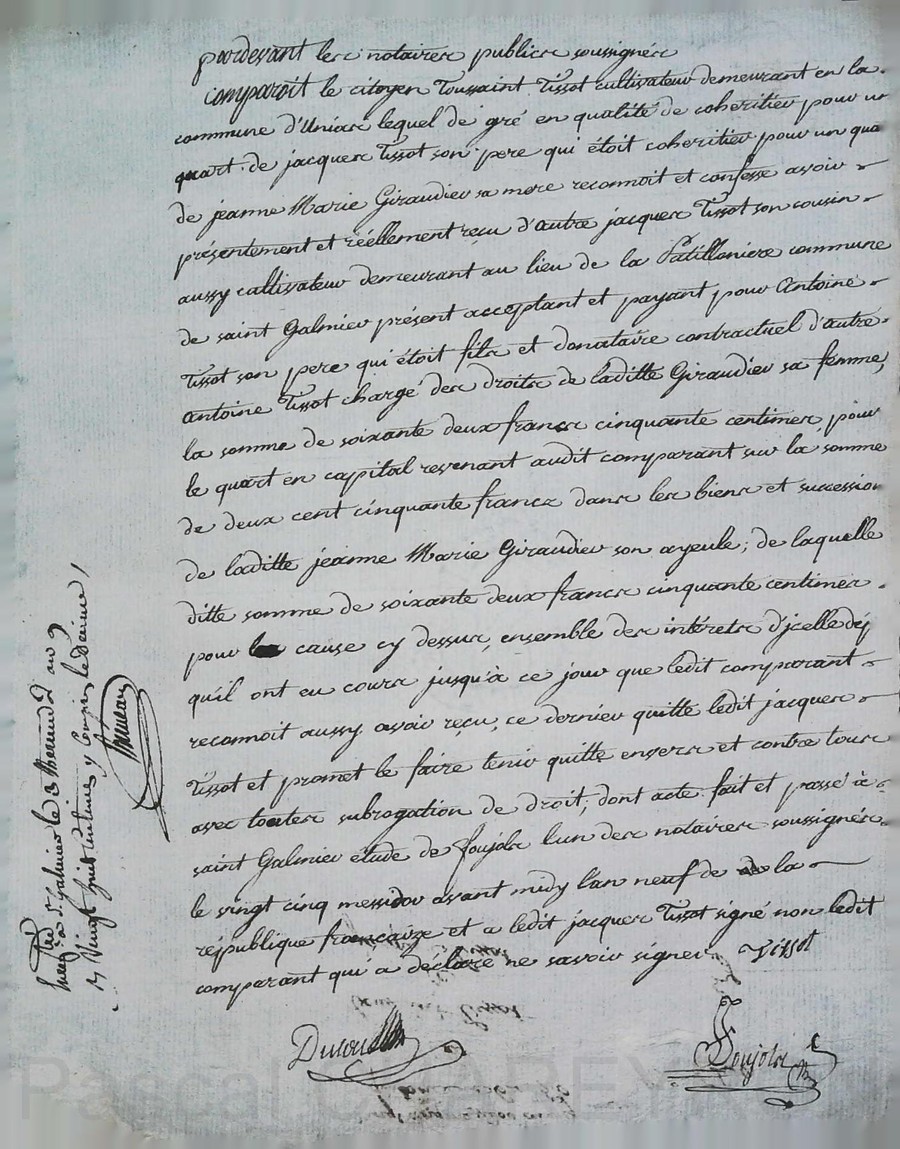 pardevant les notaires publics soussignés
comparoit le citoyen Toussaint Tissot cultivateur demeurant en la
commune d'Unias lequel de gré en qualité de coheritier pour un
quart de jacques Tissot son pere qui étoit coheritier pour un qua
de jeanne Marie Giraudier sa mere reconnoit et confesse avoir
présentement et réellement reçu d'autre jacques Tissot son cousin
aussy cultivateur demeurant au lieu de la Patilloniere commune
de saint Galmier présent acceptant et payant pour Antoine
Tissot son pere qui étoit fils et donataire contractuel d'autre
Antoine Tissot chargé des droits de laditte Giraudier sa femme,
la somme de soixante deux francs cinquante centimes, pour
le quart en capital revenant audit comparant sur la somme
de deux cent cinquante francs dans les biens et succession
de laditte jeanne Marie Giraudier son ayeule; de laquelle
ditte somme de soixante deux francs cinquante centimes
pour cause cy dessus, ensemble des intérets d'jcelle dép
qu'il ont eu cours jusqu'à ce jour que ledit comparant
reconnoit aussy avoir reçu, ce dernier quitte ledit jacques
Tissot et promet le faire tenir quitte envers et contre tous
avec toutes subrogation de droit; dont acte fait et passé à
saint Galmier étude de Foujols l'un des notaires soussignés,
le vingt cinq messidor avant midy l'an neuf de la
république françaize et a ledit jacques Tissot signé non ledit
comparant qui a déclaré ne savoir signer. Tissot
Foujols
à St Galmier le 3 Thermid an 9
Vingt huit centimes y Compris le Decime